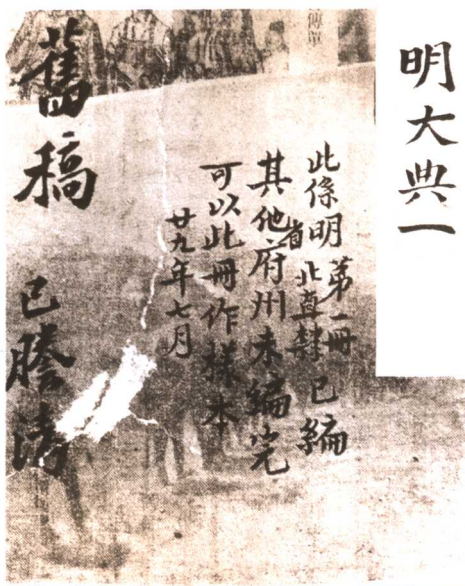 明大典一
傳單
此係明第一冊北直隸已編
其他省府州未編完
可以此冊作樣本
廿九年七月
舊稿 已謄清